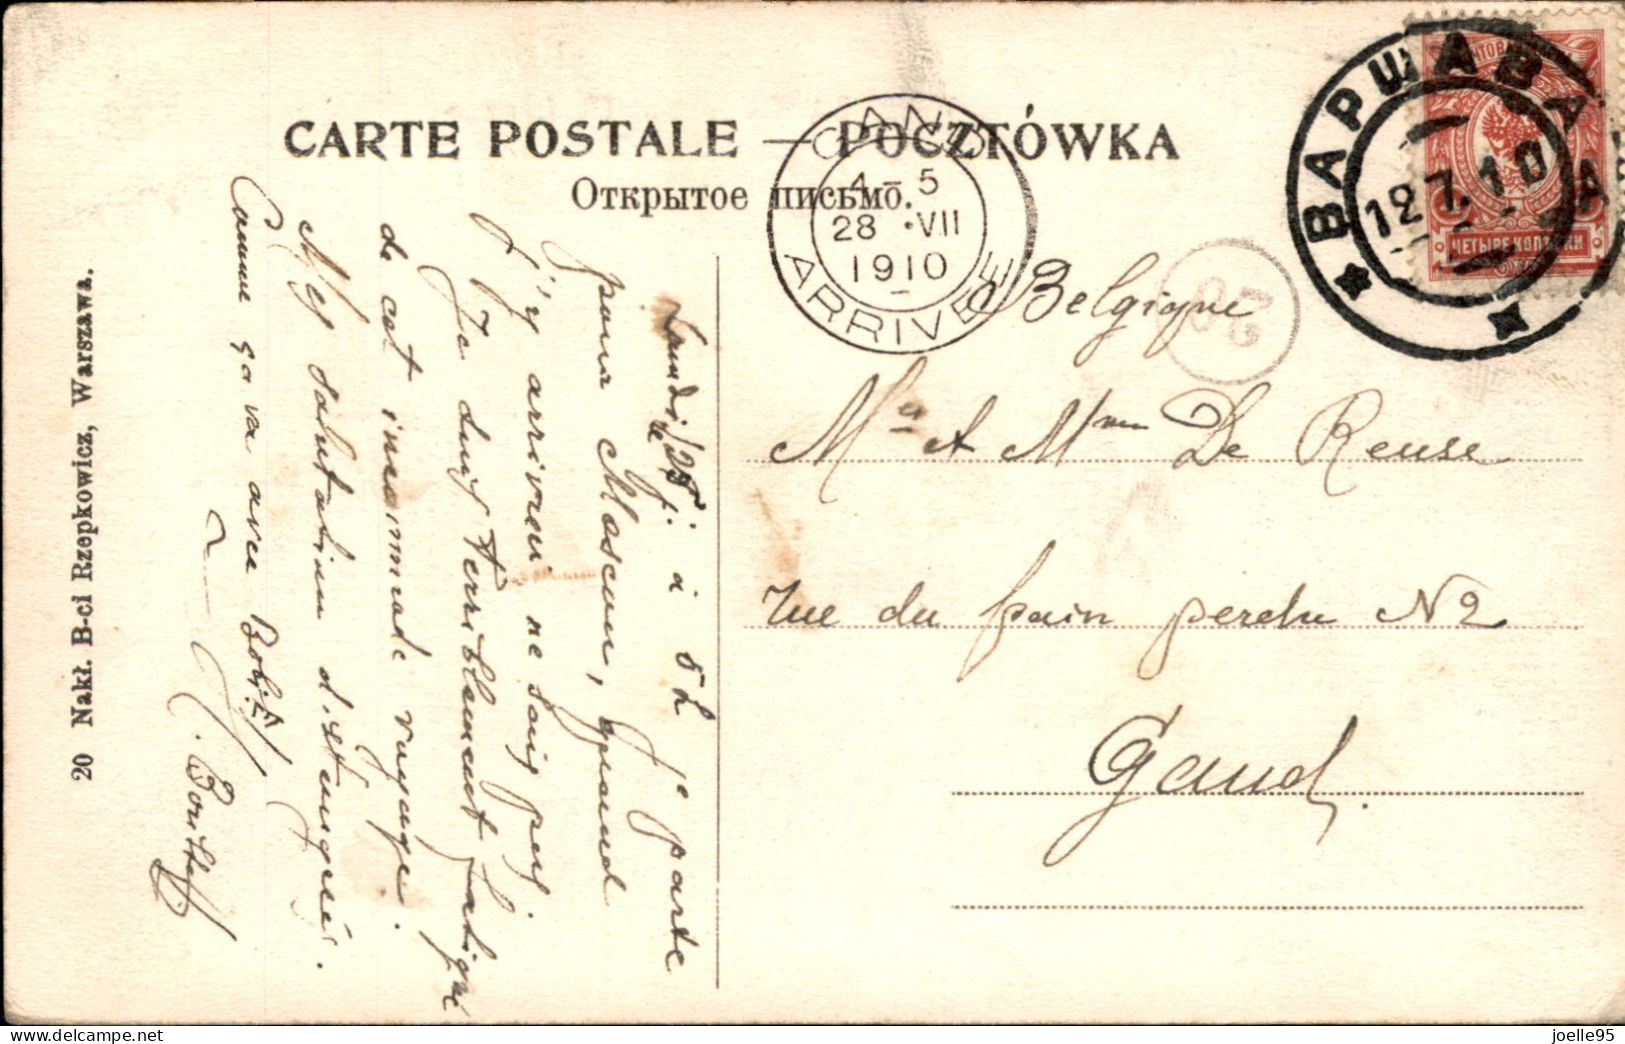 CARTE POSTALE — POCZTÓWKA
Открытое письмо.
GAND
4–5
28 VII
1910
ARRIVÉE
ВАРШАВА
12 7.10
ЧЕТЫРЕ КОПѢЙКИ
20
Belgique
Mr et Mme De Reuse
rue du pain perdu N2
Gand.
Lundi 25/7. à 5h je parte
pour Moscou, quand
j'y arriverai ne sais pas.
Je suis terriblement fatigué
de cet incommode voyage.
Mes salutations distinguées.
Comme ça va avec
20 Nakł. B-ci Rzepkowicz, Warszawa.
joelle95